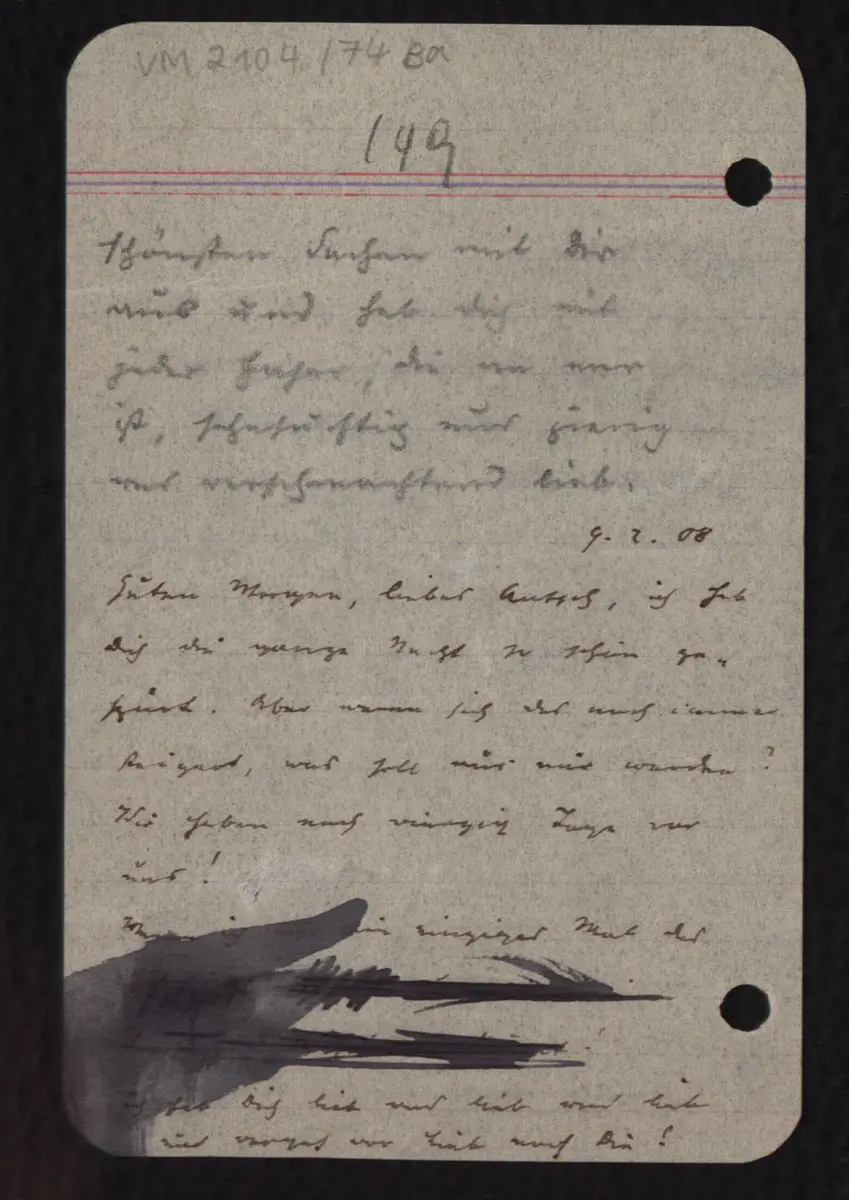 VM 2104 /74 Ba
149
schönsten Sachen mit Dir
aus und hab dich mit
jeder Faser, die an mir
ist, sehnsüchtig und gierig
und verschmachtend lieb.
9. 2. 08
Guten Morgen, liebes, ich hab
Dich die ganze Nacht so schön ge-
spürt. Aber wenn sich das noch immer
steigert, was soll aus mir werden?
Wir haben noch vierzig Tage vor
uns!
einziges Mal
ich hab Dich lieb und lieb und lieb
und vergeh vor Lieb nach Dir!